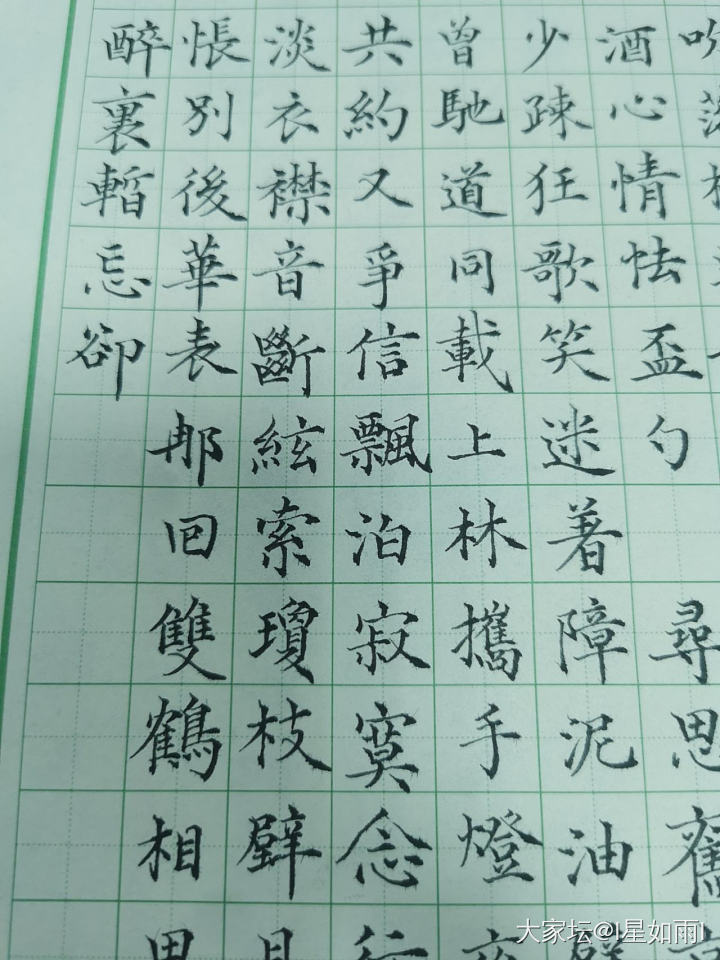 酒心情怯盃勺 尋思舊京
少疎狂歌笑迷著障泥油壁
曾馳道同載上林攜手燈夜
共約又爭信飄泊寂寞念行
淡衣襟音斷絃索瓊枝璧月
悵別後華表那回雙鶴相思
醉裏暫忘卻
大家坛@I星如雨I